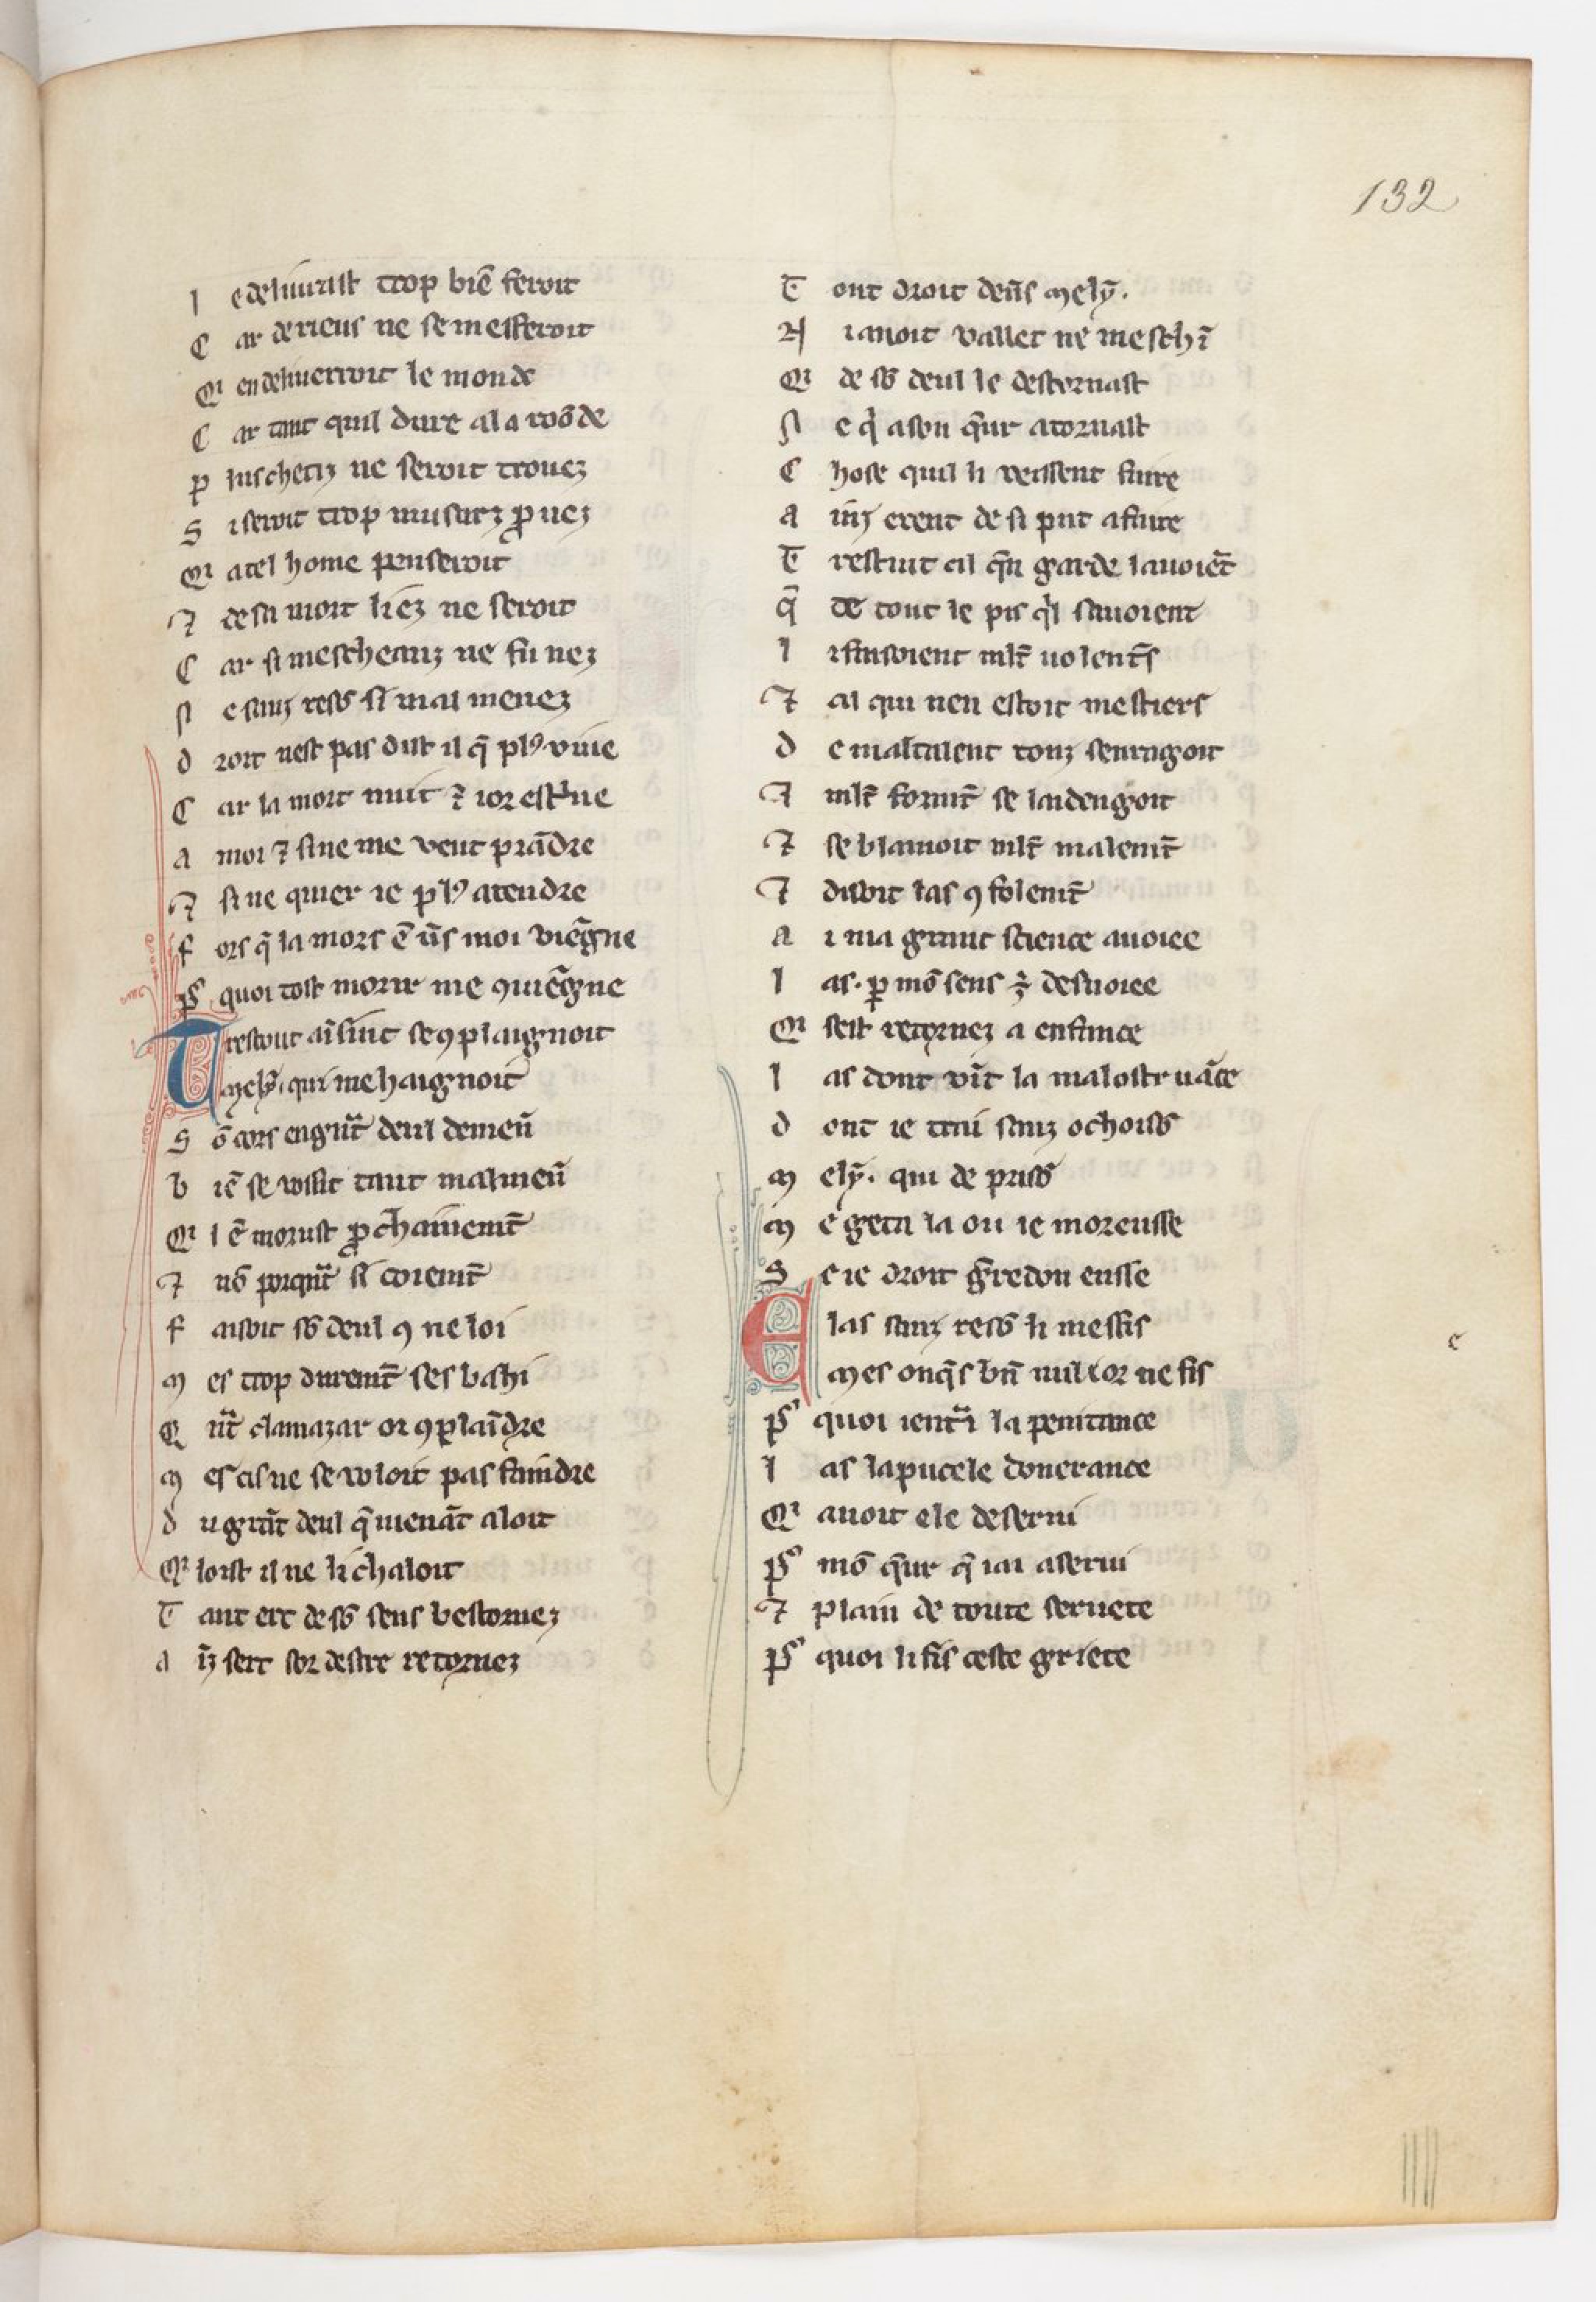 132
l e deliurast trop biē feroit
C ar de riens ne se mefferoit
Qi en deliuerroit le monde
C ar tant quil dure a la roōde
P lus chetiz ne seroit trouez
S i seroit trop musarz ꝓuez
Qi a tel home penseroit
⁊ de sa mort liez ne seroit
C ar si mescheanz ne fu nez
N e sanz resō si mal menez
D roit nest pas dist il q̄ plꝰ viue
C ar la mort nuit ⁊ ior estͥue
A moi ⁊ si ne me veut prādre
⁊ si ne quier ie plꝰ atendre
F ors q̄ la mors ē ūs moi viēgne
P̄ quoi tost morir me ꝯuiēgne
Trestout aīsint se ꝯplaignoit
Melȳ. qui mehaignoit
S ō cors en grāt deul demen̄
B iē se vosist tant malmen̄
Qi l ē morust ꝓchainemt̄
⁊ nō porqāt si coiemt̄
F aisoit sō deul ꝯ ne loi
M es trop duremt̄ ses bahi
Q āt clamazar or ꝯplaīdre
M es cis ne se voloit pas faindre
D u grāt deul q̄ menāt aloit
Qi loist il ne li chaloit
T ant ert de sō sens bestornez
A īz sert sor destre retornez
T ont droit deūs melȳ.
N i auoit vallet ne meschī
Qi de sō deul le destornast
N e q̄ a son q̄ur atornast
C hose quil li veissent faire
A inz erent de si put afaire
T restuit cil q̄n garde lauoiēt
Q̄ de tout le pis qͥl sauoient
l i faisoient mlt̄ uolent̄s
⁊ cil qui nen estoit mestiers
D e maltalent touz senragoit
⁊ mlt̄ formt̄ se laidengoit
⁊ se blamoit mlt̄ malemt̄
⁊ disoit las ꝯ folemt̄
A i ma grant science auoiee
l as. ꝑ mō sens ē desuoiee
Qi sest retornez a enfance
l as dont vīt la malostruāce
D ont ie trai sanz ochoisō
M elȳ. qui de prisō
M e geta la ou ie moreusse
S e ie droit ḡredon eusse
Elas sanz resō li mesfis
Mes onq̄s bn̄ nul ior ne fis
P̄ quoi ientͣi la penitance
l as la pucele donerance
Qi auoit ele deserui
P̄ mō q̄ur q̄ iai aserui
⁊ plain de toute seruete
P̄ quoi li fis ceste griete
c